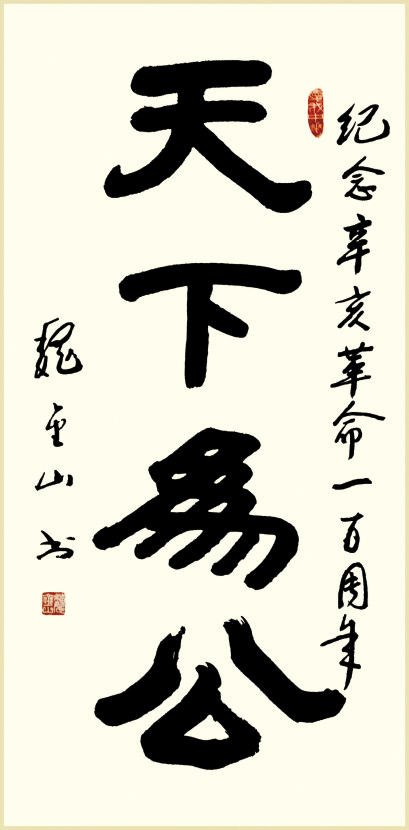 纪念辛亥革命一百周年
天下為公
魏金山书